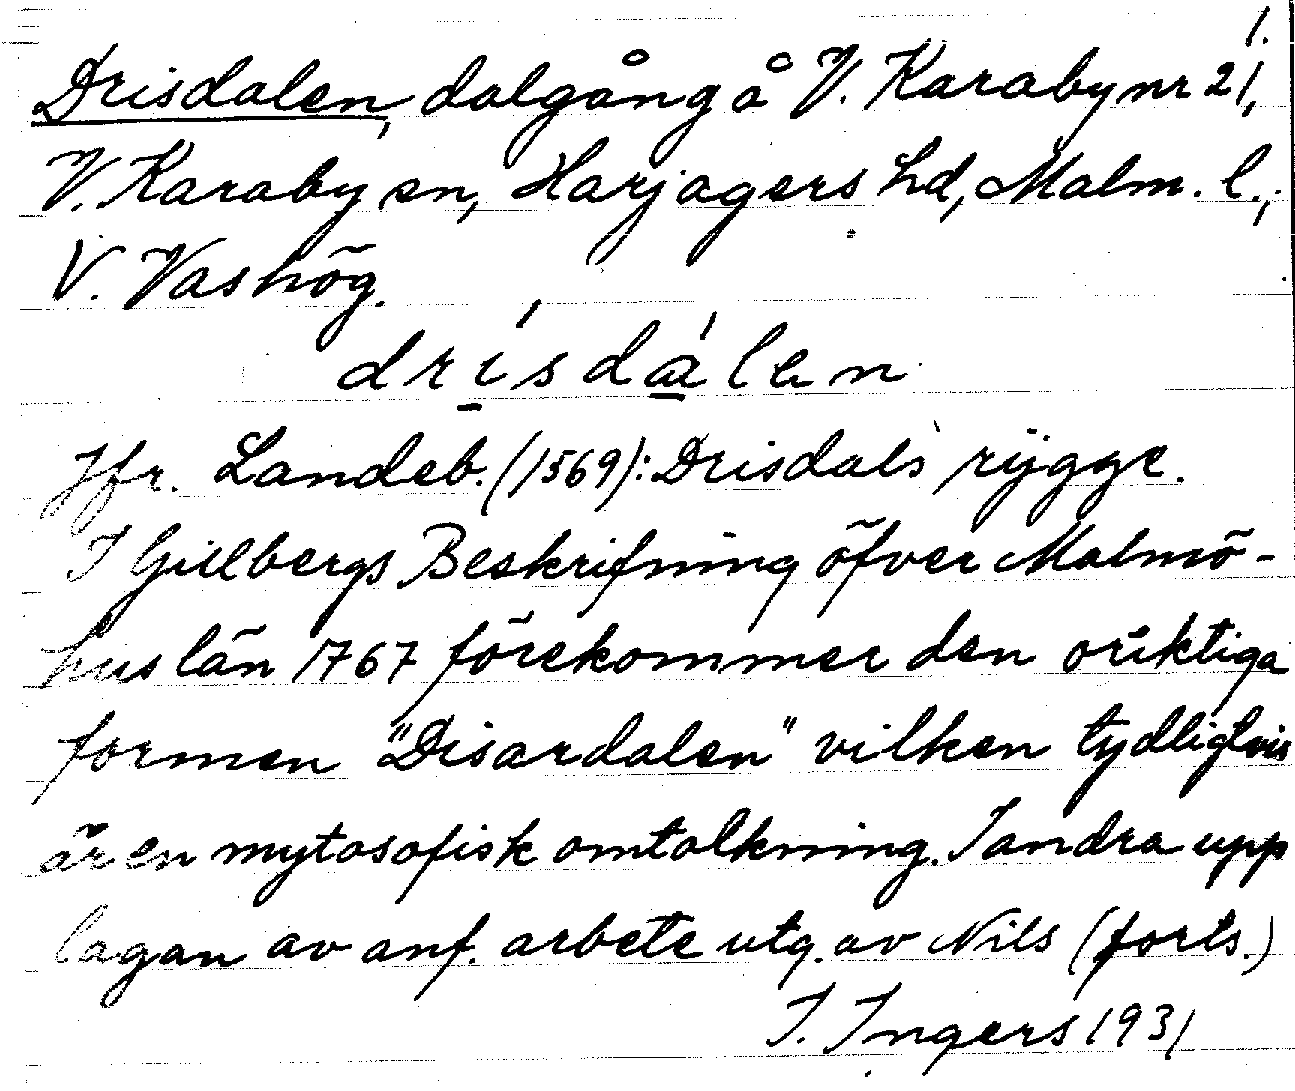 1.
Drisdalen, dalgång å V. Karaby nr 21,
V. Karaby sn, Harjagers hd, Malm. l.,
V. Vashög.
drísdálen
Jfr. Landeb. (1569): Drisdals rÿgge.
I Gillbergs Beskrifning öfver Malmö-
hus län 1767 förekommer den oriktiga
formen "Disardalen" vilken tydligtvis
är en mytosofisk omtolkning. I andra upp
lagan av anf. arbete utg. av Nils (forts.)
I. Ingers 1931